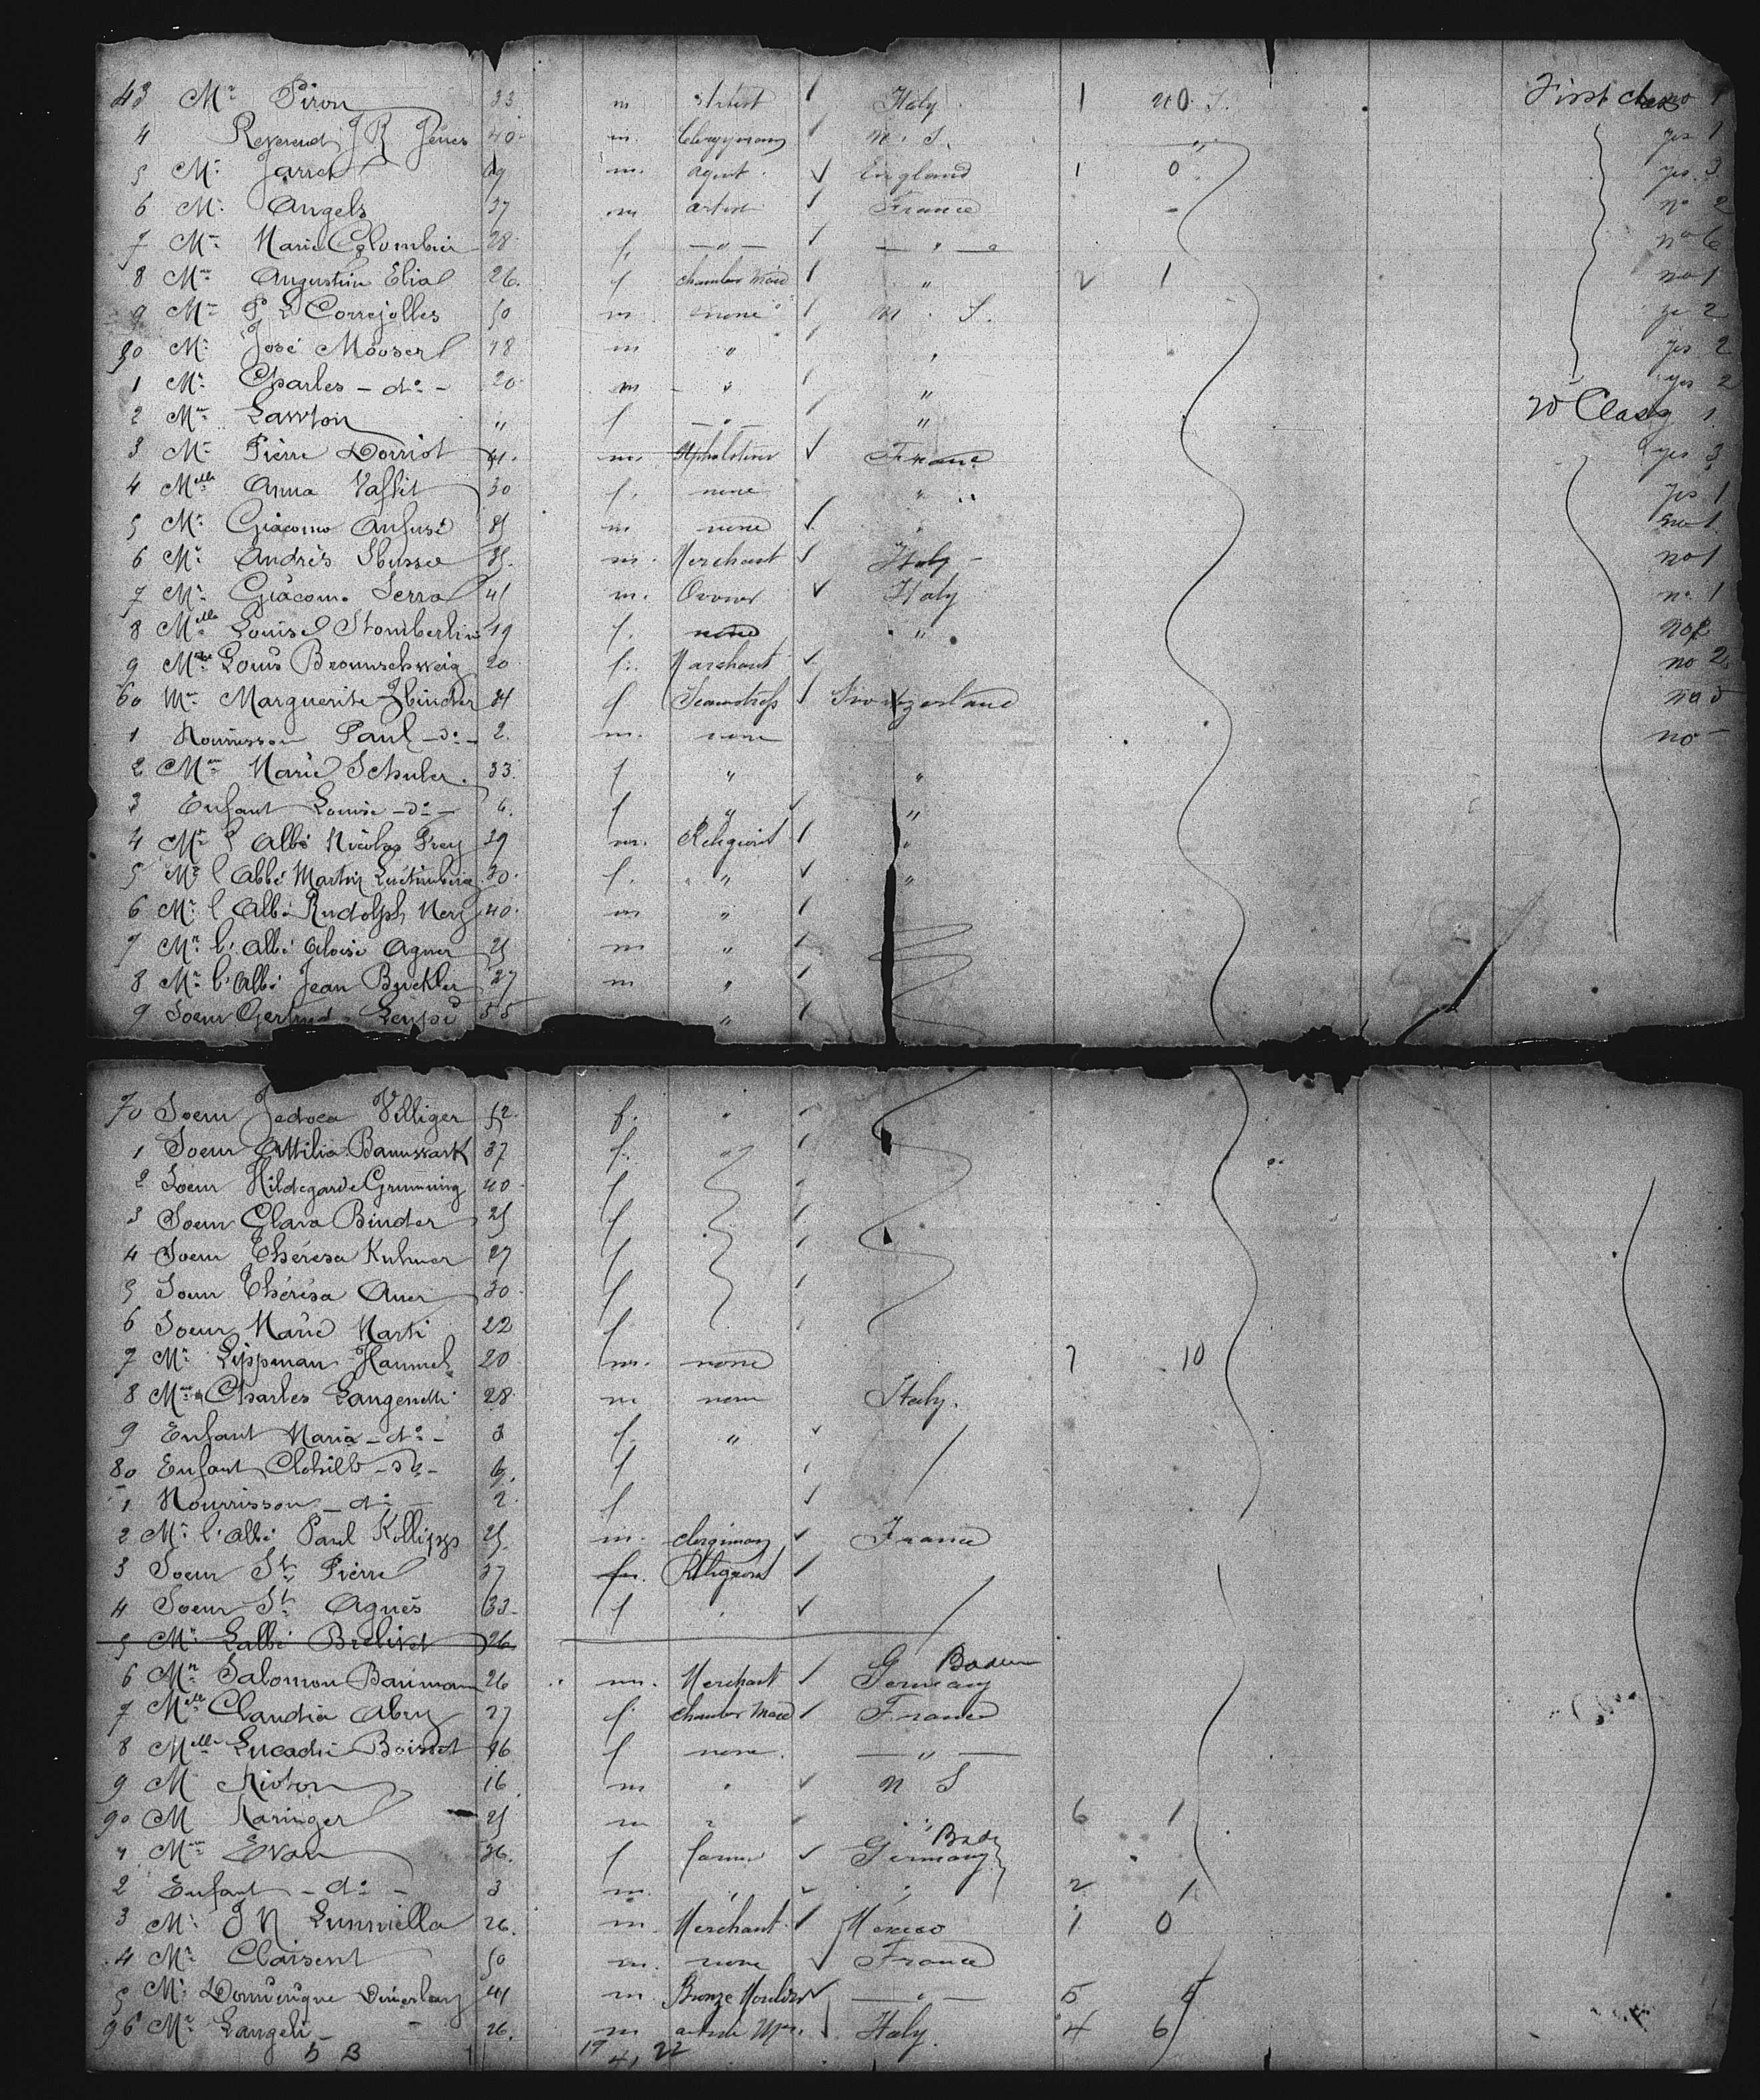 43 Mr Piron 33 m artist Italy 1 20 First class no 1
4 Reverend J R Jener 40 m. Clergyman M. S. yes 1
5 Mr Jarret 69 m. agent. England 1 0 yes 3
6 Mr Angels 37 m artist France no 2
7 Mme Marie Colombier 28 f. — " — — " — no 6
8 Mme Augustine Elia 26. f chamber maid " 2 1 no 1
9 Mr P L Correjolles 50 m none M. S. ye 2
50 Mr José Mooser 18 m " " yes 2
1 Mr Charles — do — 20 m " " yes 2
2 Mme Lawton " f — " — " 2d Class 1
3 Mr Pierre Dorriot 41. m. Upholsterer France yes 3
4 Melle Anna 30 f. none " yes 1
5 Mr Giacomo m none " 1
6 Mr Andrés 35. m. Merchant Italy no 1
7 Mr Giacomo Serra 45 m. Italy no 1
8 Melle Louise Stomberlin 19 f. none " no 2
9 Louis Brounschweig 20 f. Marchant no 2
60 Mme Marguerite 34 f Seamstress Switzerland no
1 Nourrisson Paul — do — 2. m. none no
2 Mme Marie Schuler. 33 f " "
3 Enfant Louise — do — 6. f " "
4 Mr l'Abbé Nicolas Frey 39 m. Religions "
5 Mr l'Abbé Martin 30. f. " "
6 Mr l'Abbé Rudolph 40. m "
7 Mr l'Abbé Aloise Agner 25 m "
8 Mr l'Abbé Jean 27 m "
9 Soeur Gertrud Leupi 55 "
70 Soeur Jodoca Villiger 52. f. "
1 Soeur Ottilia 37 f. "
2 Soeur Hildegarde Grunning 40 f
3 Soeur Clara Binder 25 f
4 Soeur Thérésa 27 f
5 Soeur Thérésa Auer 30 f
6 Soeur Marie Marti 22 f
7 Mr Lippman Hammel 20 m. none 7 10
8 Charles 28 m none Italy.
9 Enfant Maria — do — 3 f. "
80 Enfant — do — 6. f
1 Nourrisson — do — 2. f
2 Mr l'Abbé Paul 25. m. clergiman France
3 Soeur St Pierre 37 Religions
4 Soeur St Agnès 33 f .
5 Mr Labbé 26
6 Mr Salomon Bauman 26 m. Merchant G Baden Germany
7 Melle Claudia 27 f. chamber maid France
8 Melle Boissot f none. — " —
9 M Rioton 16 m " M S
90 M Raringer 25 m " " 6 1
1 Mme Evan 36. f Baden Germany
2 Enfant — do — 3 m. " 2 1
3 Mr J N Lunniella 26. m. Merchant Mexico 1 0
4 Mr Claisent 50 m. none France
5 Mr Dominique 41 m Bronze Moulder — " — 5
96 Mr Langeli 26. m Italy. 4 6
5 3 19 22